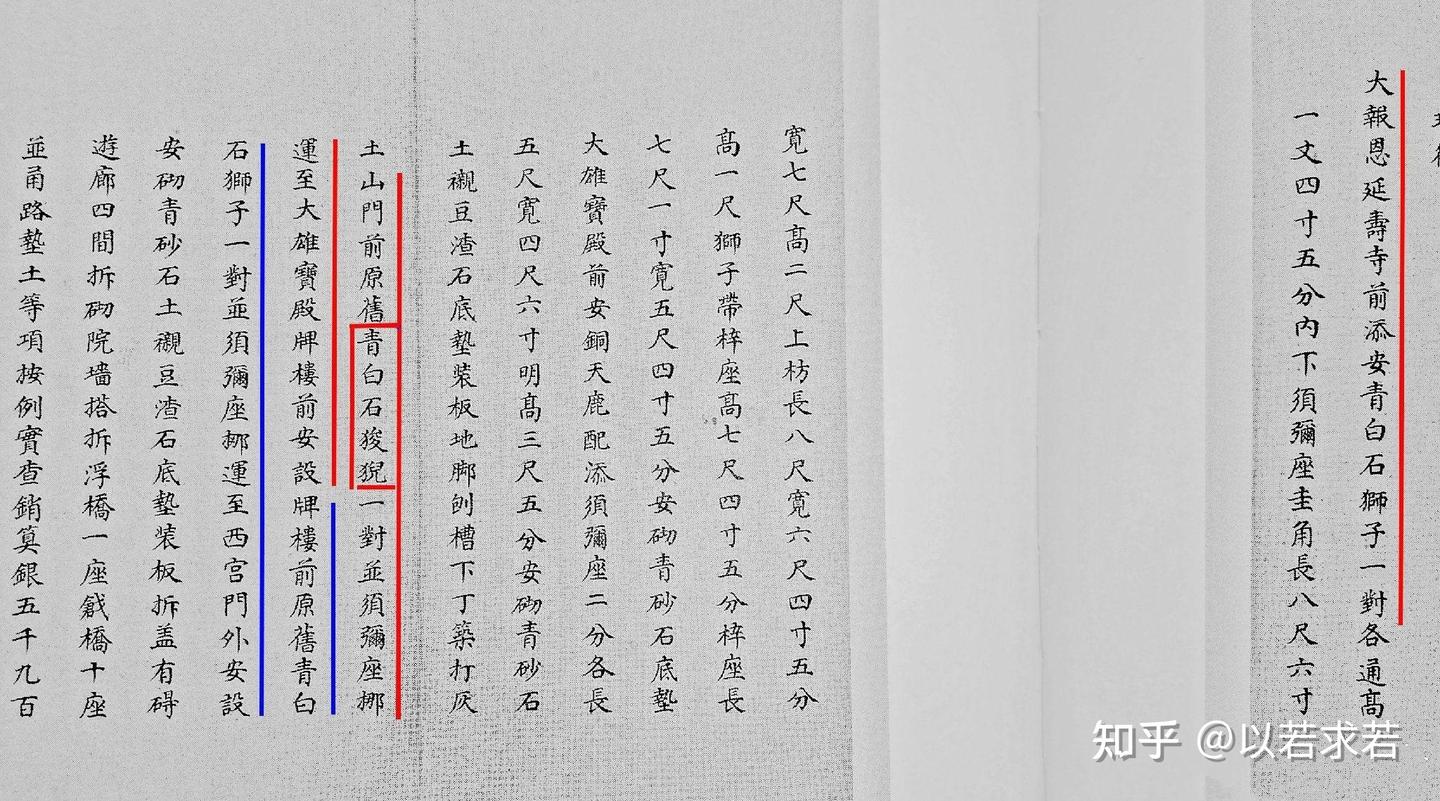 大報恩延壽寺前添安青白石獅子一對各通高
一丈四寸五分內下須彌座圭角長八尺六寸
寬七尺高二尺上枋長八尺寬六尺四寸五分
高一尺獅子帶梓座高七尺四寸五分梓座長
七尺一寸寬五尺四寸五分安砌青砂石底墊
大雄寶殿前安銅天鹿配添須彌座二分各長
五尺寬四尺六寸明高三尺五分安砌青砂石
土襯豆渣石底墊裝板地脚刨槽下丁築打灰
土山門前原舊青白石狻猊一對並須彌座挪
運至大雄寶殿牌樓前安設牌樓前原舊青白
石獅子一對並須彌座挪運至西宮門外安設
安砌青砂石土襯豆渣石底墊裝板拆盖有碍
遊廊四間拆砌院墻搭拆浮橋一座戧橋十座
並甬路墊土等項按例實查銷筭銀五千九百
知乎 @以若求若